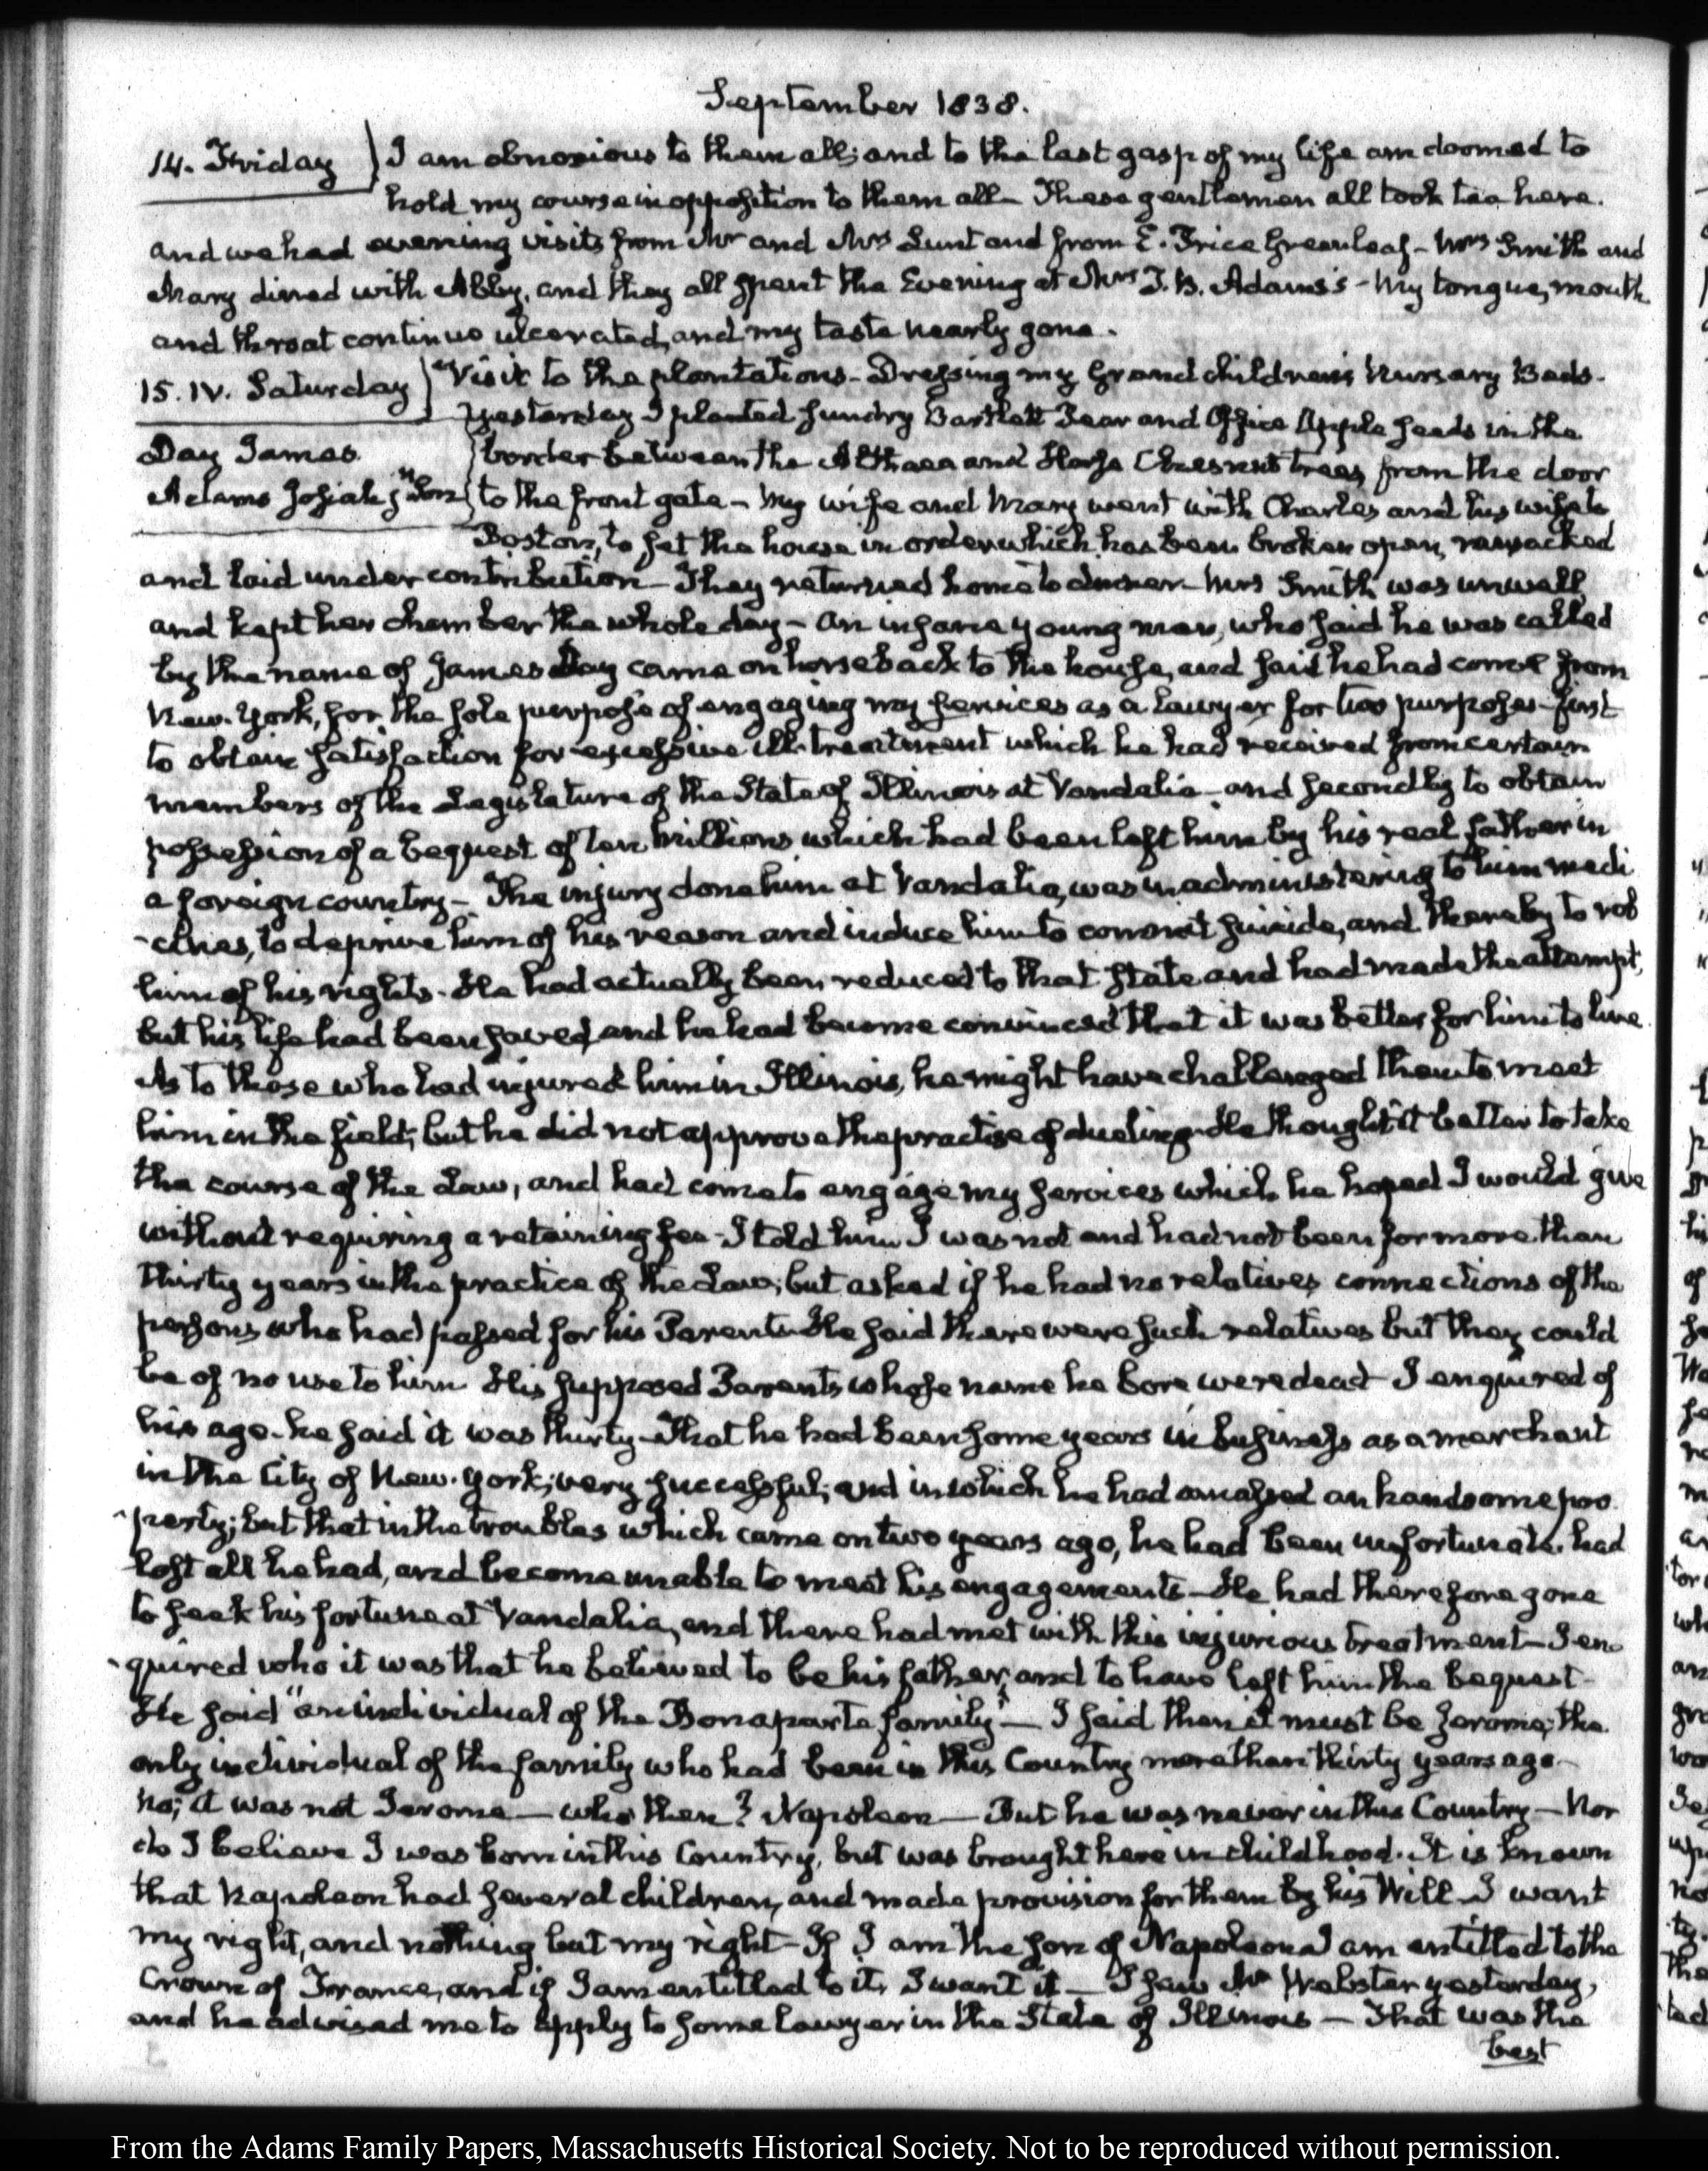 September 1838.
14. Friday
I am obnoxious to them all; and to the last gasp of my life am doomed to
hold my course in opposition to them all — These gentlemen all took tea here.
and we had evening visits from Mr and Mrs Lunt and from E. Price Greenleaf — Mrs Smith and
Mary dined with Abby, and they all spent the Evening at Mrs T. B. Adams's — My tongue, mouth
and throat continue ulcerated, and my taste nearly gone.
15. IV. Saturday
Visit to the plantations — Dressing my Grandchildren's Nursery Beds.
Yesterday I planted sundry Bartlett Pear and Office Apple seeds in the
Day James
border between the Althaea and Horse Chesnut trees from the door
Adams Josiah junr
to the front gate — My wife and Mary went with Charles and his wife to
Boston, to set the house in order which has been broken open, ransacked
and laid under contribution — They returned home to dinner — Mrs Smith was unwell
and kept her chamber the whole day — An insane young man, who said he was called
by the name of James Day came on horseback to the house, and said he had come from
New-York, for the sole purpose of engaging my services as a lawyer for two purposes — first
to obtain satisfaction for excessive ill-treatment which he had received from certain
members of the Legislature of the State of Illinois at Vandalia — and secondly to obtain
possession of a bequest of ten Millions which had been left him by his real father in
a foreign country — The injury done him at Vandalia, was in administering to him medi
-cines, to deprive him of his reason and induce him to commit suicide, and thereby to rob
him of his rights. He had actually been reduced to that state and had made the attempt,
but his life had been saved, and he had become convinced that it was better for him to live.
As to those who had injured him in Illinois, he might have challenged them to meet
him in the field; but he did not approve the practise of dueling. He thought it better to take
the course of the Law, and had come to engage my services which he hoped I would give
without requiring a retaining fee — I told him I was not and had not been for more than
thirty years in the practice of the Law; but asked if he had no relatives, connections of the
persons who had passed for his Parents. He said there were such relatives but they could
be of no use to him. His supposed Parents whose name he bore were dead — I enquired of
his age — he said it was thirty — That he had been some years in business as a merchant
in the City of New-York; very successful; and in which he had amassed an handsome pro
-perty; but that in the troubles which came on two years ago, he had been unfortunate, had
lost all he had, and become unable to meet his engagements — He had therefore gone
to seek his fortune at Vandalia, and there had met with this injurious treatment — I en
-quired who it was that he believed to be his father, and to have left him the bequest —
He said "an individual of the Bonaparte family" — I said then it must be Jerome; the
only individual of the family who had been in this Country more than thirty years ago —
No; it was not Jerome — who then? Napoleon — But he was never in this Country — Nor
do I believe I was born in this Country, but was brought here in childhood. It is known
that Napoleon had several children, and made provision for them by his Will — I want
my right, and nothing but my right — If I am the son of Napoleon I am entitled to the
Crown of France, and if I am entitled to it, I want it — I saw Mr Webster yesterday,
and he advised me to apply to some lawyer in the State of Illinois — That was the
best
From the Adams Family Papers, Massachusetts Historical Society. Not to be reproduced without permission.